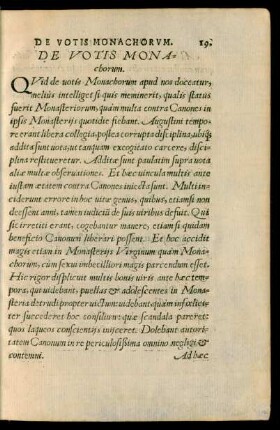 DE VOTIS MONACHORVM. 19.
DE VOTIS MONA-
chorum.
QVid de uotis Monachorum apud nos doceatur,
melius intelliget si quis meminerit, qualis status
fuerit Monasteriorum, quàm multa contra Canones in
ipsis Monasterijs quotidie fiebant. Augustini tempo-
re erant libera collegia, postea corrupta disciplina, ubiq;
addita sunt uota, ut tanquam excogitato carcere, disci-
plina restitueretur. Additæ sunt paulatim supra uota
aliæ multæ obseruationes. Et hæc uincula multis ante
iustam ætatem contra Canones iniecta sunt. Multi in-
ciderunt errore in hoc uitæ genus, quibus, etiamsi non
deessent anni, tamen iudicij de suis uiribus defuit. Qui
sic irretiti erant, cogebantur manere, etiam si quidam
beneficio Canonum liberari possent. Et hoc accidit
magis etiam in Monasterijs Virginum quàm Mona-
chorum, cùm sexui imbecilliori magis parcendum esset.
Hic rigor displicuit multis bonis uiris ante hæc tem-
pora, qui uidebant, puellas & adolescentes in Mona-
steria detrudi propter uictum: uidebant, quàm infœlici-
ter succederet hoc consilium: quæ scandala pareret:
quos laqueos conscientijs inijceret. Dolebant autori-
tatem Canonum in re periculosissima omnino negligi &
contemni. Ad hæc